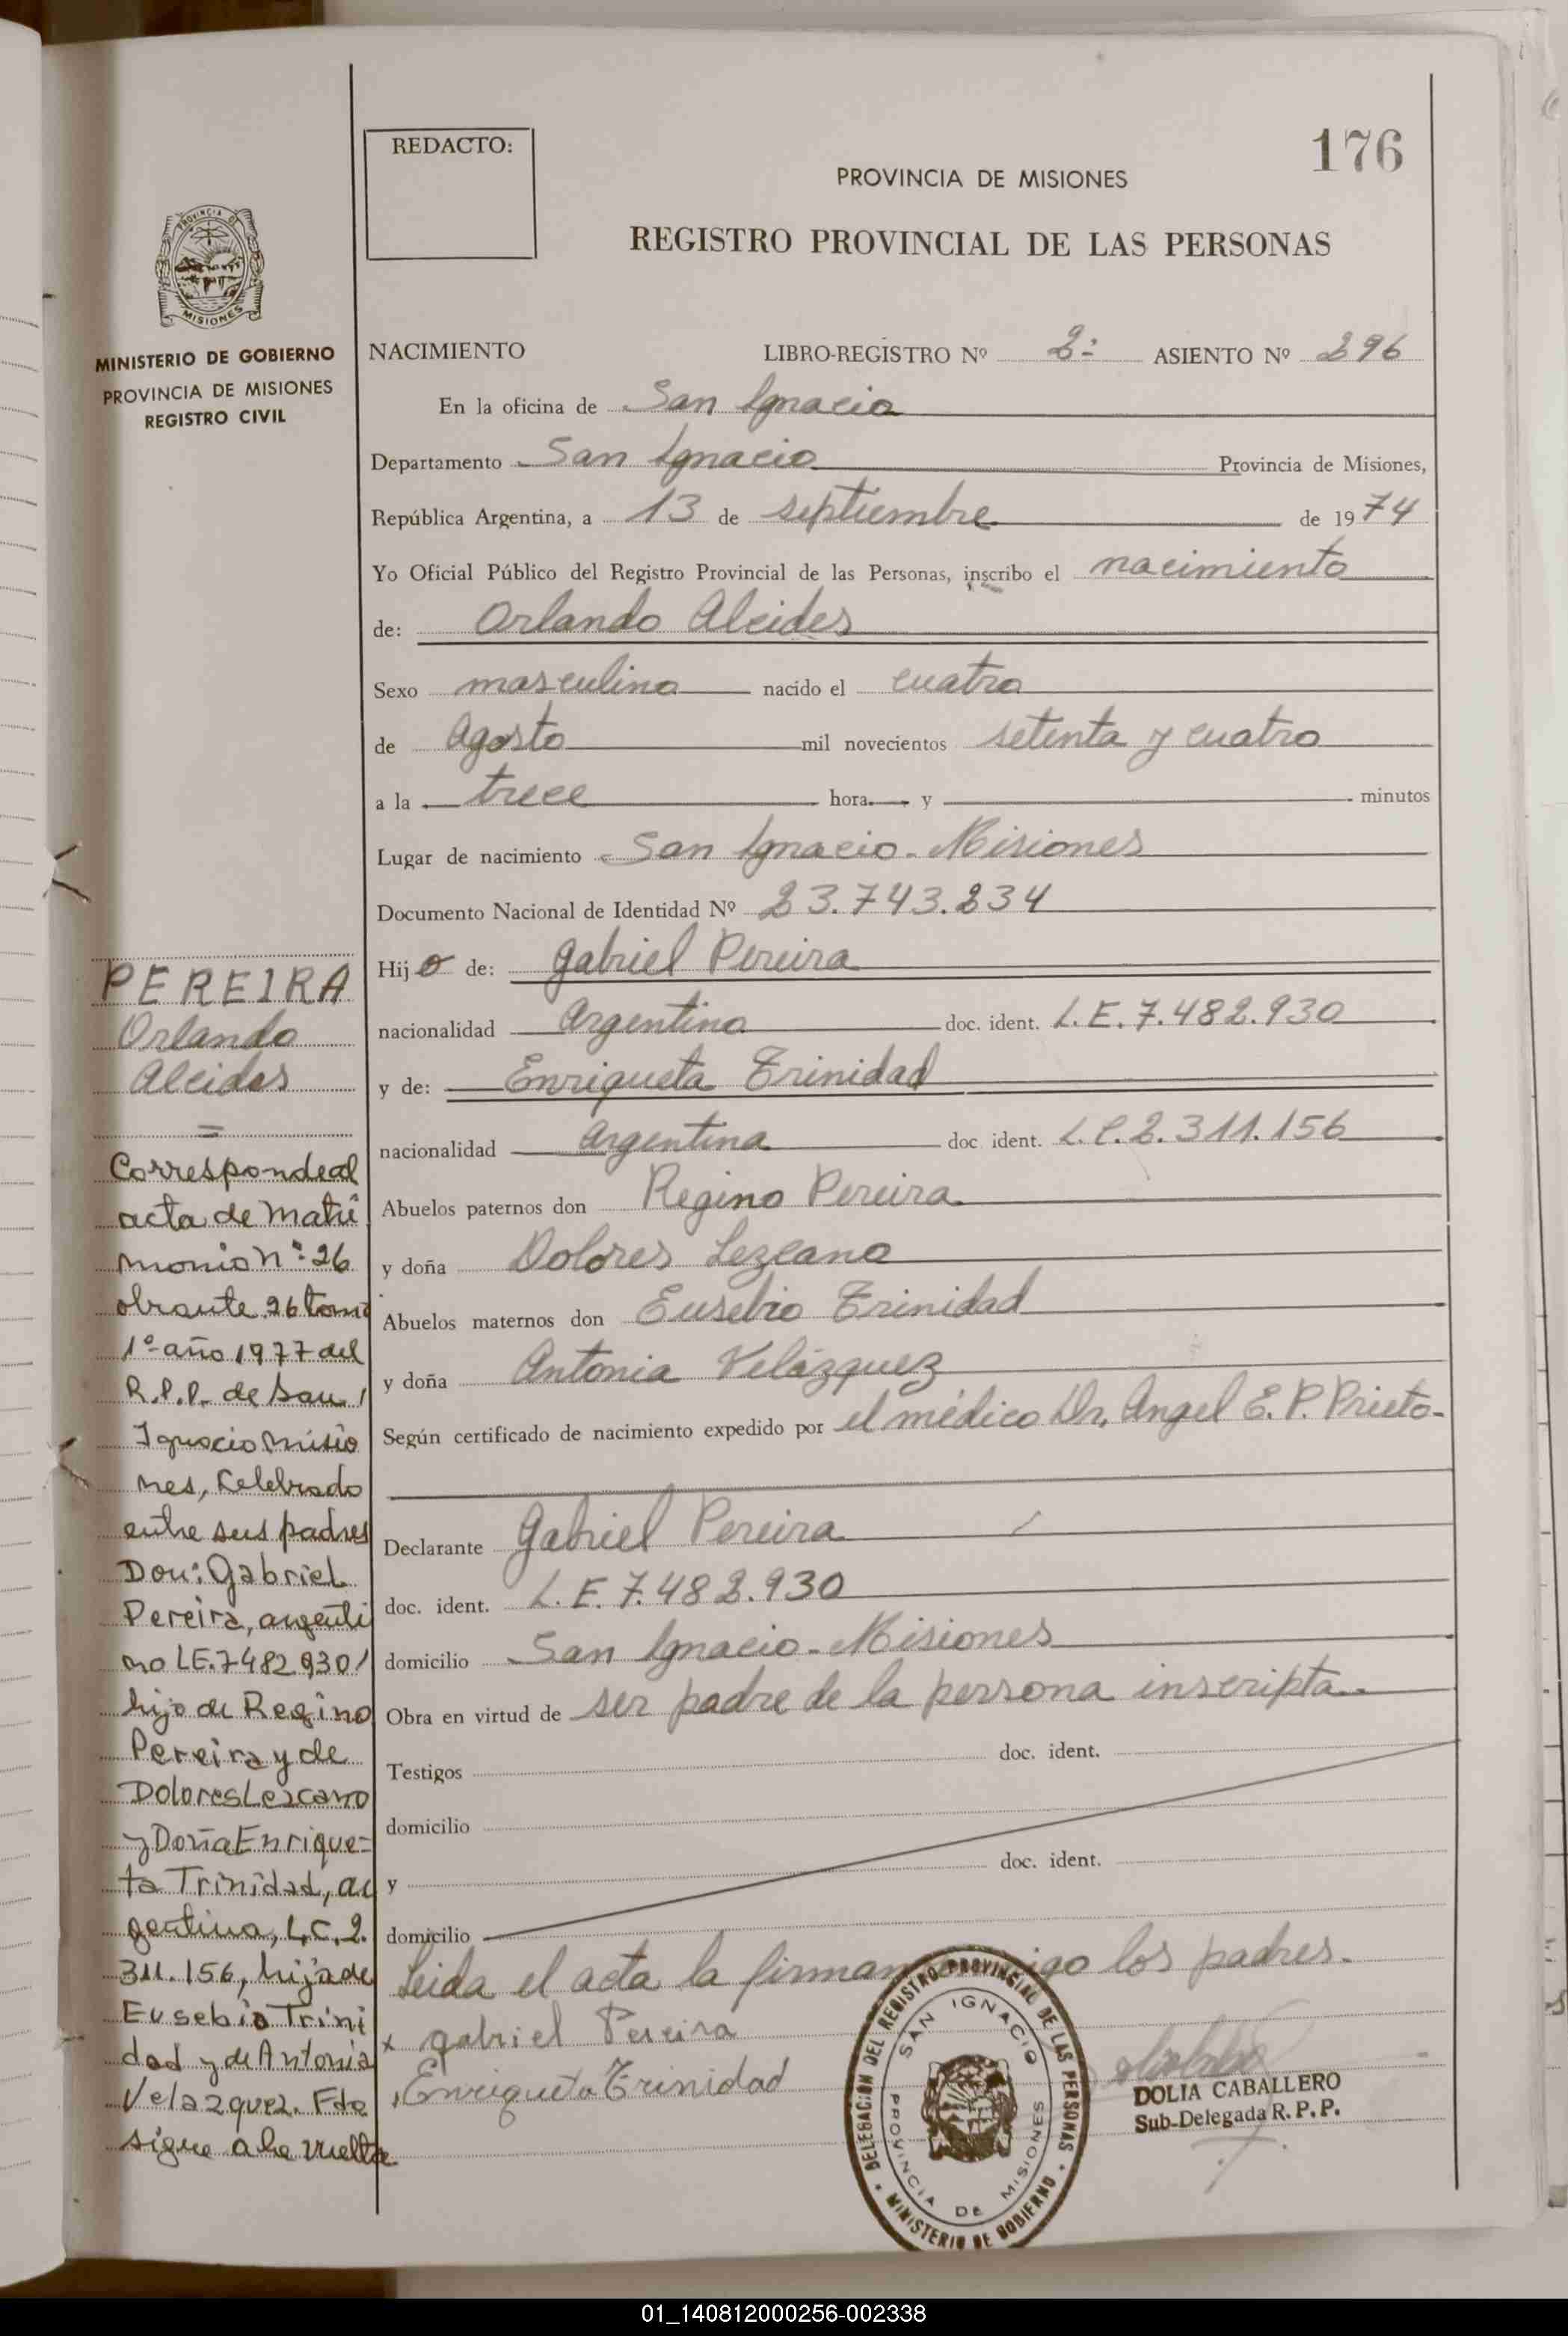 176
REDACTO:
PROVINCIA DE MISIONES
REGISTRO PROVINCIAL DE LAS PERSONAS
PROVINCIA DE
MISIONES
MINISTERIO DE GOBIERNO
PROVINCIA DE MISIONES
REGISTRO CIVIL
NACIMIENTO LIBRO-REGISTRO Nº 2º ASIENTO Nº 296
En la oficina de San Ignacio
Departamento San Ignacio Provincia de Misiones,
República Argentina, a 13 de septiembre de 1974
Yo Oficial Público del Registro Provincial de las Personas, inscribo el nacimiento
de: Orlando Alcides
Sexo masculino nacido el cuatro
de Agosto mil novecientos setenta y cuatro
a la trece hora y minutos
Lugar de nacimiento San Ignacio - Misiones
Documento Nacional de Identidad Nº 23.743.234
Hijo de: Gabriel Pereira
nacionalidad Argentino doc. ident. L.E. 7.482.930
y de: Enriqueta Trinidad
nacionalidad argentina doc ident. L.C. 2.311.156
Abuelos paternos don Regino Pereira
y doña Dolores Lezcano
Abuelos maternos don Eusebio Trinidad
y doña Antonia Velázquez
Según certificado de nacimiento expedido por el médico Dr. Angel E. P. Prieto-
Declarante Gabriel Pereira
doc. ident. L.E. 7.482.930
domicilio San Ignacio - Misiones
Obra en virtud de ser padre de la persona inscripta.
Testigos doc. ident.
domicilio
y doc. ident.
domicilio
Leida el acta la firman los padres.
x gabriel Pereira
Enriqueta Trinidad
DELEGACION DEL REGISTRO PROVINCIAL DE LAS PERSONAS
MINISTERIO DE GOBIERNO
SAN IGNACIO
PROVINCIA DE MISIONES
DOLIA CABALLERO
Sub-Delegada R. P. P.
PEREIRA
Orlando
Alcides
=
Correspondeal
acta de Matri
monio nº 26
obrante 26 tomo
1º año 1977 del
R.P.P. de San
Ignacio Misio
nes, Celebrado
entre sus padres
Don: Gabriel
Pereira, argenti
no L.E. 7482930/
hijo de Regino
Pereira y de
Dolores Lezcano
y Doña Enrique=
ta Trinidad, ar
gentina, L.C. 2.
311.156, hija de
Eusebio Trini
dad y de Antonia
Velazquez. Fdo
sigue a la vuelta
01_140812000256-002338